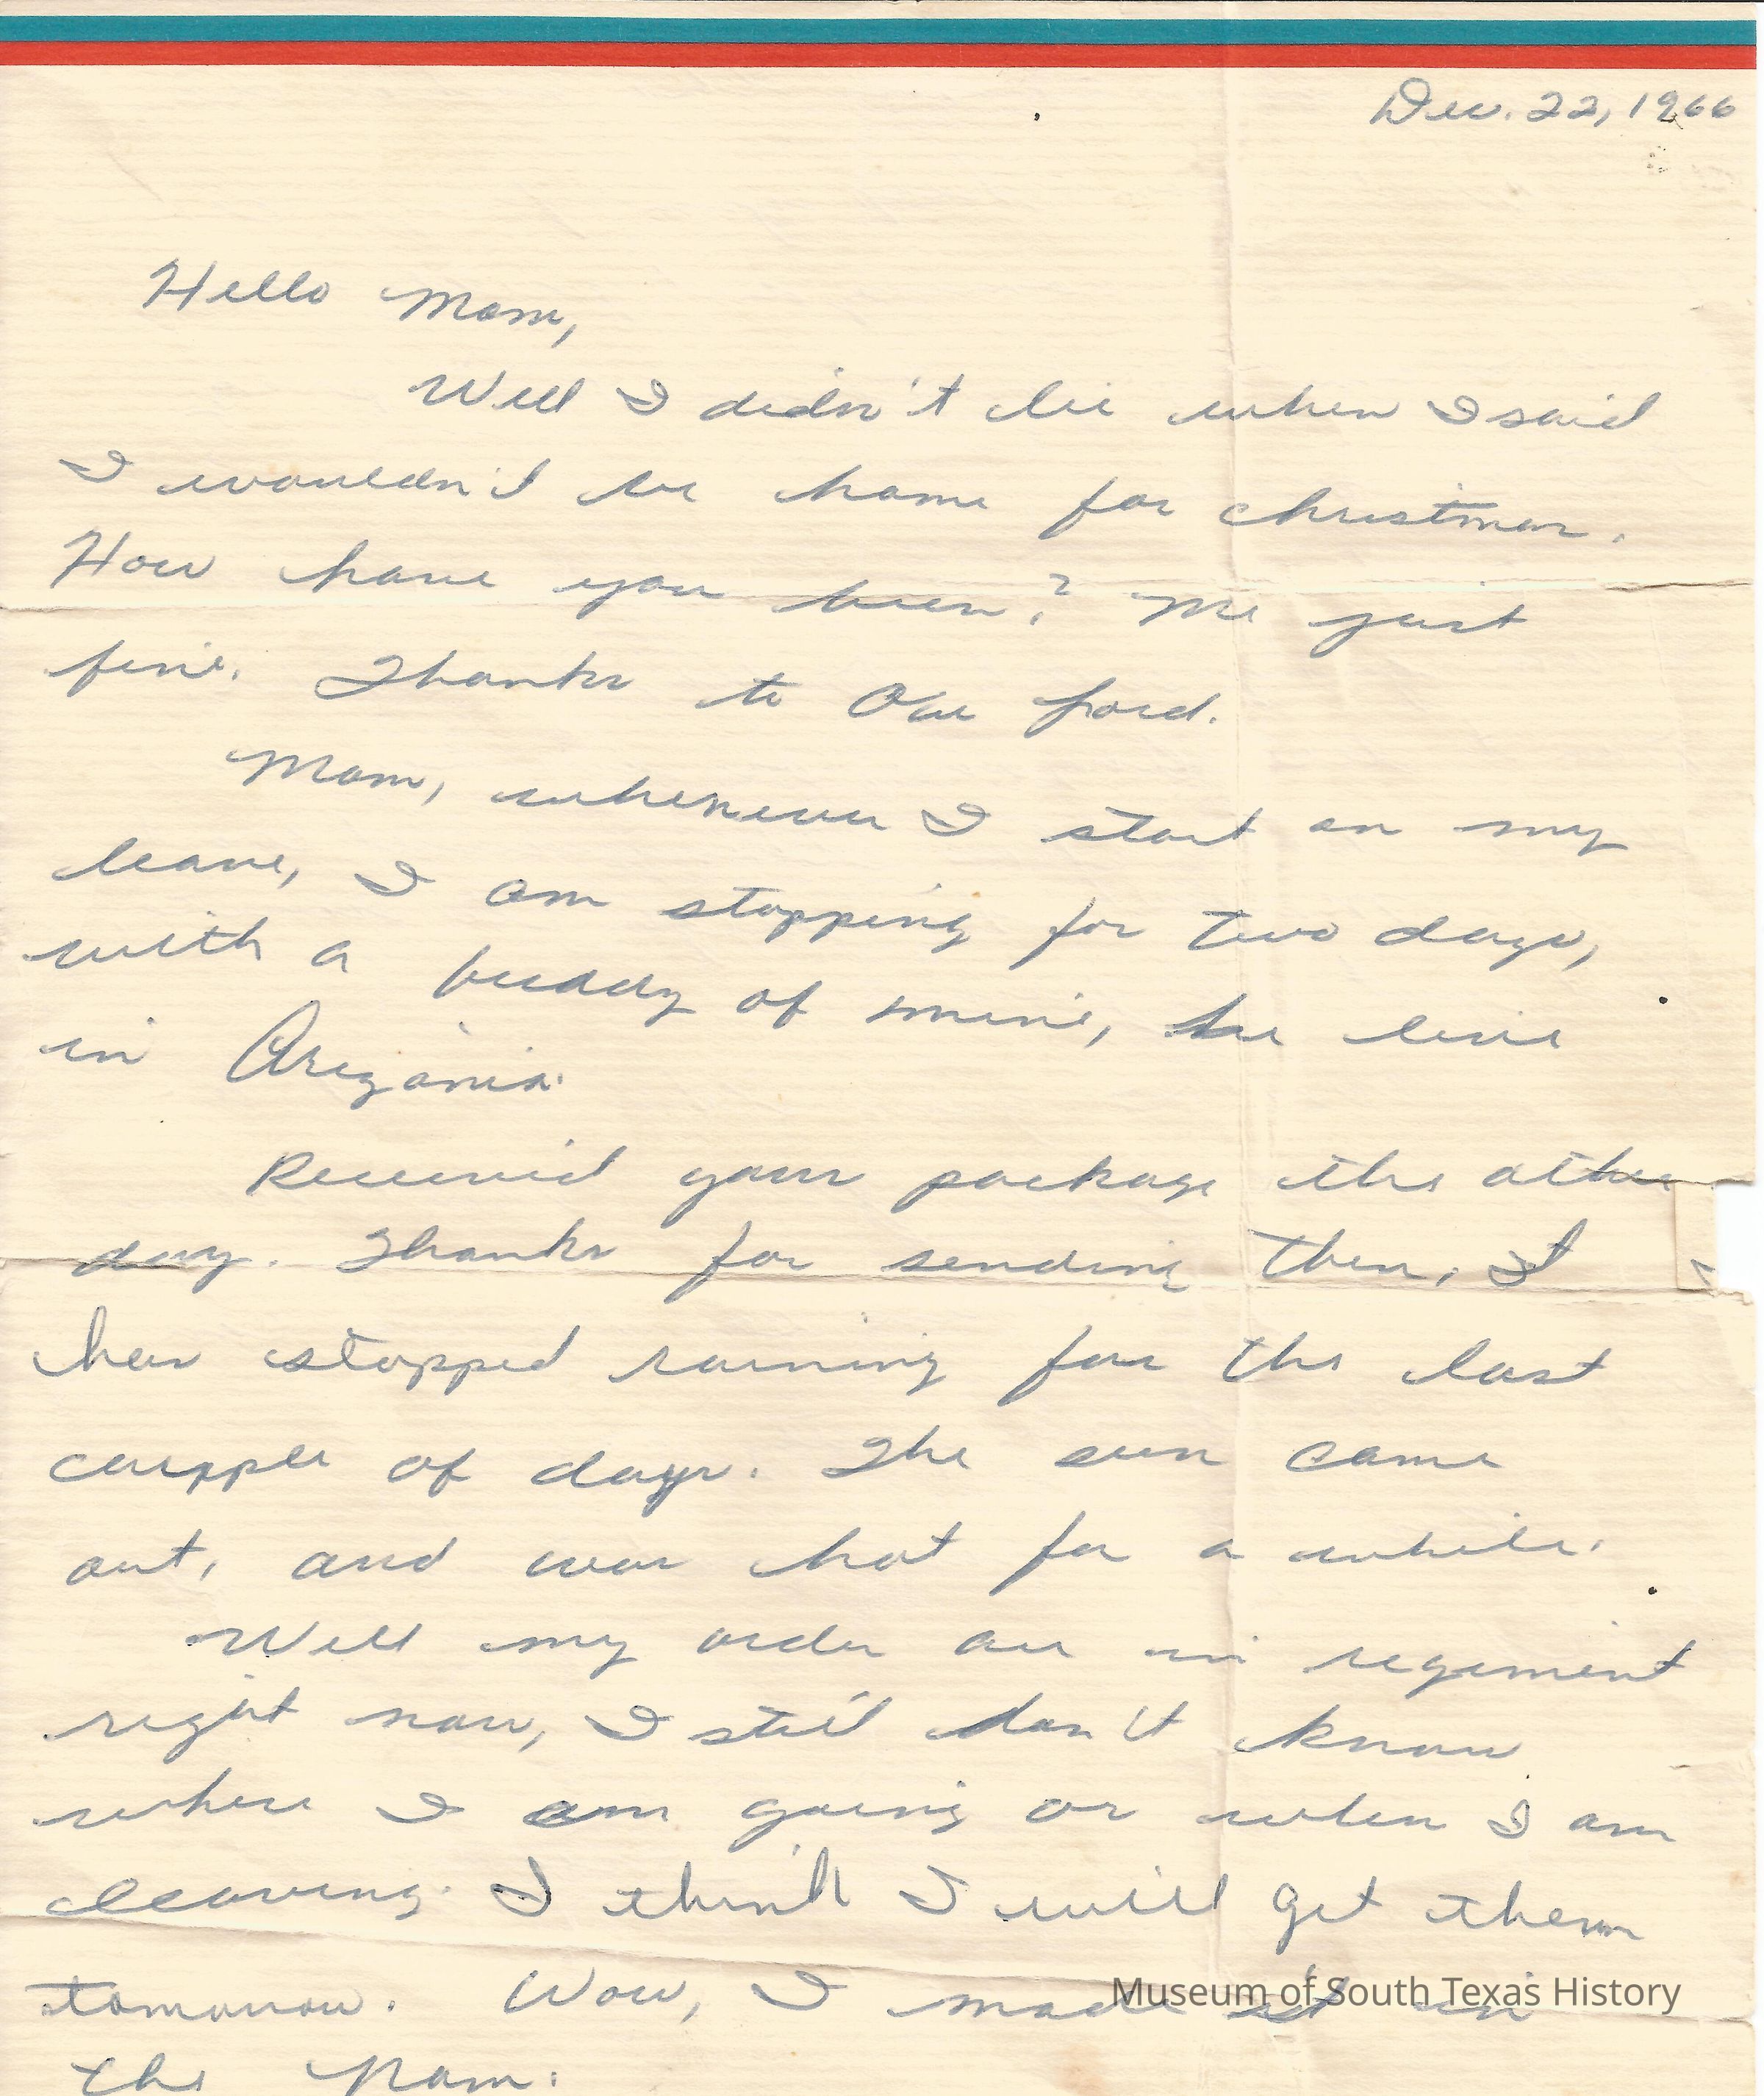 Dec. 22, 1966
Hello Mom,
Well I didn't lie when I said
I wouldn't be home for christmas.
How have you been? Me just
fine. Thanks to Our Lord.
Mom, whenever I start on my
leave, I am stopping for two days,
with a buddy of mine, he live
in Arizonia.
Received your package the other
day. Thanks for sending them. It
has stopped raining for the last
coupple of days. The sun came
out, and was hot for a while.
Well my order are in regiment
right now, I still don't know
where I am going or when I am
leaving. I think I will get them
tomorrow. Wow, I made it in
the Nam.
Museum of South Texas History